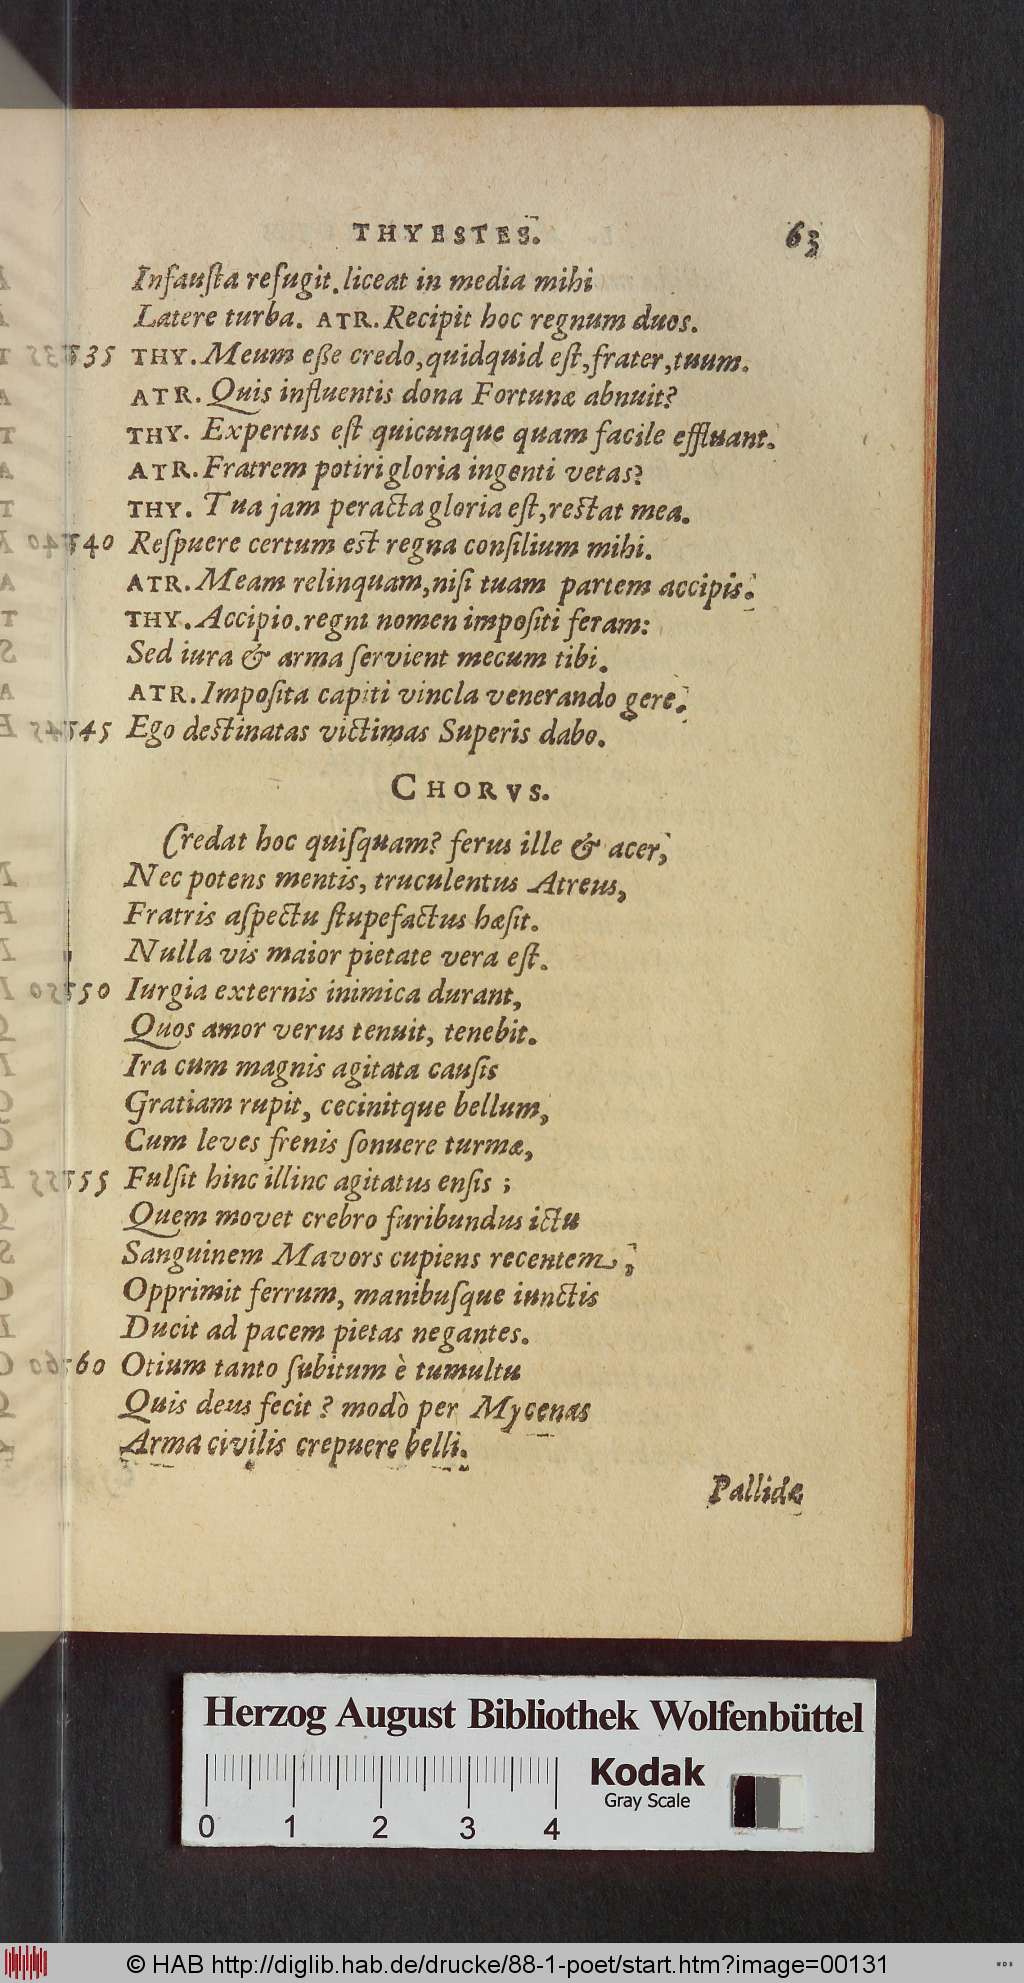 THYESTES. 63
Infauſta refugit. liceat in media mihi
Latere turba. ATR. Recipit hoc regnum duos.
535 THY. Meum eße credo, quidquid eſt, frater, tuum.
ATR. Quis influentis dona Fortunæ abnuit?
THY. Expertus eſt quicunque quam facile effluant.
ATR. Fratrem potiri gloria ingenti vetas?
THY. Tua jam peracta gloria eſt, reſtat mea.
540 Reſpuere certum eſt regna conſilium mihi.
ATR. Meam relinquam, niſi tuam partem accipis.
THY. Accipio. regni nomen impoſiti feram:
Sed iura & arma ſervient mecum tibi.
ATR. Impoſita capiti vincla venerando gere.
545 Ego deſtinatas victimas Superis dabo.
CHORVS.
Credat hoc quiſquam? ferus ille & acer,
Nec potens mentis, truculentus Atreus,
Fratris aſpectu ſtupefactus hæſit.
Nulla vis maior pietate vera eſt.
550 Iurgia externis inimica durant,
Quos amor verus tenuit, tenebit.
Ira cum magnis agitata cauſis
Gratiam rupit, cecinitque bellum,
Cum leves frenis ſonuere turmæ,
555 Fulſit hinc illinc agitatus enſis;
Quem movet crebro furibundus ictu
Sanguinem Mavors cupiens recentem,
Opprimit ferrum, manibuſque iunctis
Ducit ad pacem pietas negantes.
560 Otium tanto ſubitum è tumultu
Quis deus fecit? modò per Mycenas
Arma civilis crepuere belli.
Pallidæ
Herzog August Bibliothek Wolfenbüttel
Kodak
Gray Scale
0 1 2 3 4
© HAB http://diglib.hab.de/drucke/88-1-poet/start.htm?image=00131